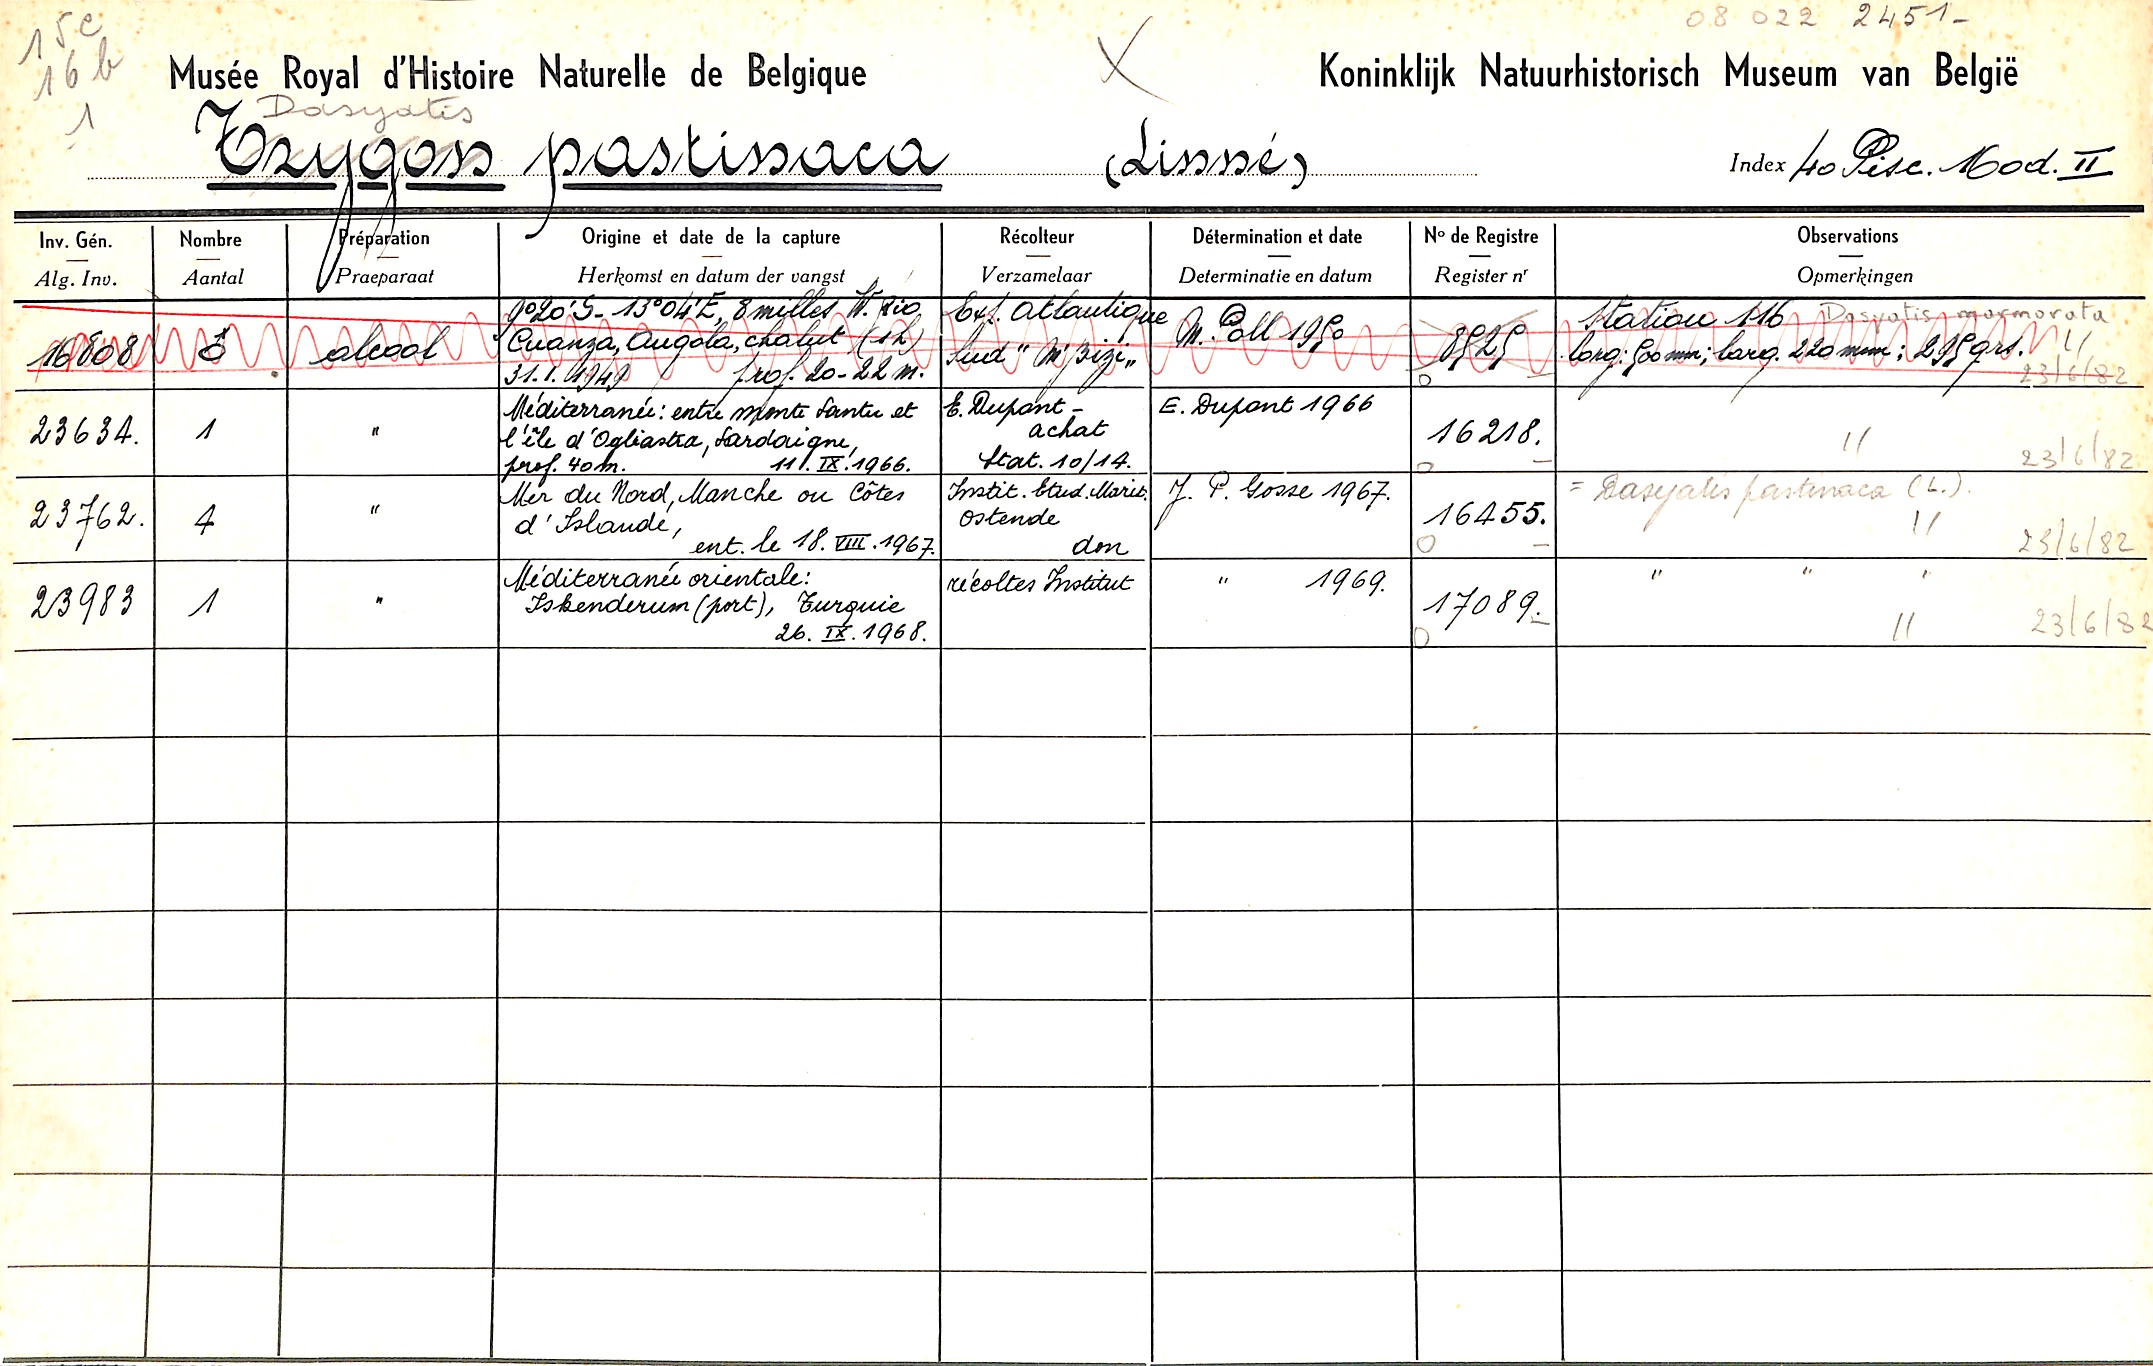 15c
16b
1
08 022 2451-
Musée Royal d'Histoire Naturelle de Belgique
Koninklijk Natuurhistorisch Museum van België
Dasyatis
Trygon pastinaca (Linné)
Index 40 Pisc. Mod. II
Inv. Gén. Nombre Préparation Origine et date de la capture Récolteur Détermination et date No de Registre Observations
Alg. Inv. Aantal Praeparaat Herkomst en datum der vangst Verzamelaar Determinatie en datum Register nr Opmerkingen
9°20'S - 13°04'E, 8 milles W. Rio Exp. Atlantique Station 116 Dasyatis marmorata
16808 alcool Cuanza, Angola, chalut (1h) Sud "M'Bizi" M. Poll 1950 8525 long: 500 mm; larg. 220 mm; 295 grs. "
31.1.1949 prof. 20-22 m. 23/6/82
Méditerranée: entre monte Santu et E. Dupont - E. Dupont 1966
23634. 1 " l'île d'Ogliastra, Sardaigne, achat 16218. "
prof. 40 m. 11.IX.1966. Stat. 10/14. 23/6/82
Mer du Nord, Manche ou Côtes Instit. Etud. Marit. J. P. Gosse 1967. = Dasyatis pastinaca (L.).
23762. 4 " d'Islande, Ostende 16455. "
ent. le 18.VIII.1967. don 23/6/82
Méditerranée orientale: récoltes Institut " 1969. " " "
23983 1 " Iskenderum (port), Turquie 17089. "
26.IX.1968. 23/6/82